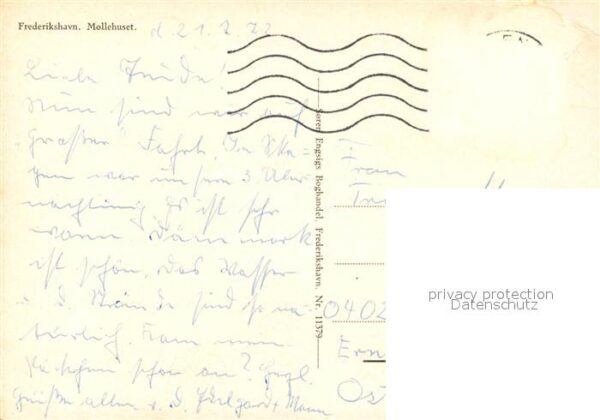 Frederikshavn. Møllehuset.
d. 21.7.72
Liebe Trude!
Nun sind wir auf
"Großer" Fahrt. In Ska=
gen war unsere 3. Über
nachtung. Es ist sehr
warm. Dänemark
ist schön, das Wasser
u. d. Strände sind so na
türlich. Kann man
schon an? Herzl.
Grüße allen v. d. Hildgard + Mann
Søren Engsigs Boghandel. Frederikshavn. Nr. 11379
Frau
0402
Ern
Os
privacy protection
Datenschutz